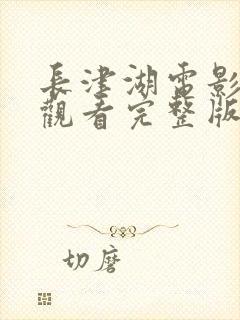 長津湖電影
觀看完整版
切磨